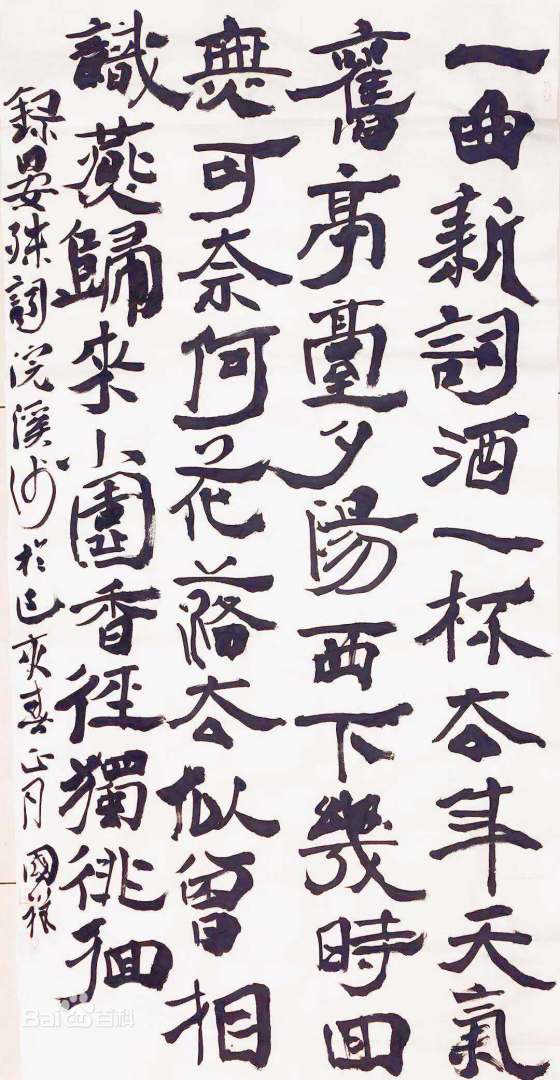 一曲新詞酒一杯去年天氣
舊亭臺夕陽西下幾時回
無可奈何花落去似曾相
識燕歸來小園香徑獨徘徊
錄晏殊詞浣溪沙於己亥春正月國祥
Bai百科